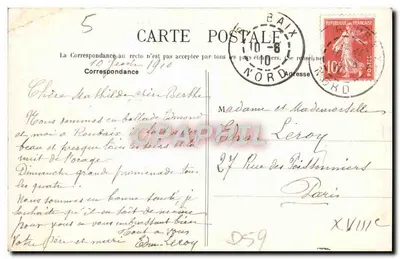 5
CARTE POSTALE
La Correspondance au recto n'est pas acceptée par tous les pays étrangers. Se renseigner
Correspondance
Adresse
ROUBAIX
10-6
10
NORD
RÉPUBLIQUE FRANÇAISE
10
POSTES
NORD
10 1910
Chère Mathilde, chère Berthe
Nous sommes en ballade Edmond
et moi à Roubaix
beau et presque tous
nuit de l'orage
Dimanche grande promenade tous
les quatre.
Nous sommes en bonne santé, je
souhaite qu'il en soit de même
pour vous
Tout à vous
Votre père et mari Edm Leroy
Madame et Mademoiselle
Edm. Leroy
27 Rue des Poissonniers
Paris
XVIIIe
D59
CARTPOSTALE